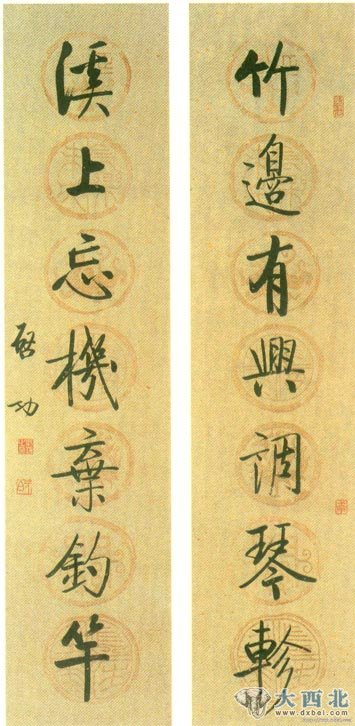 竹邊有興調琴軫
溪上忘機棄釣竿
啓功
大西北
www.dxbei.com